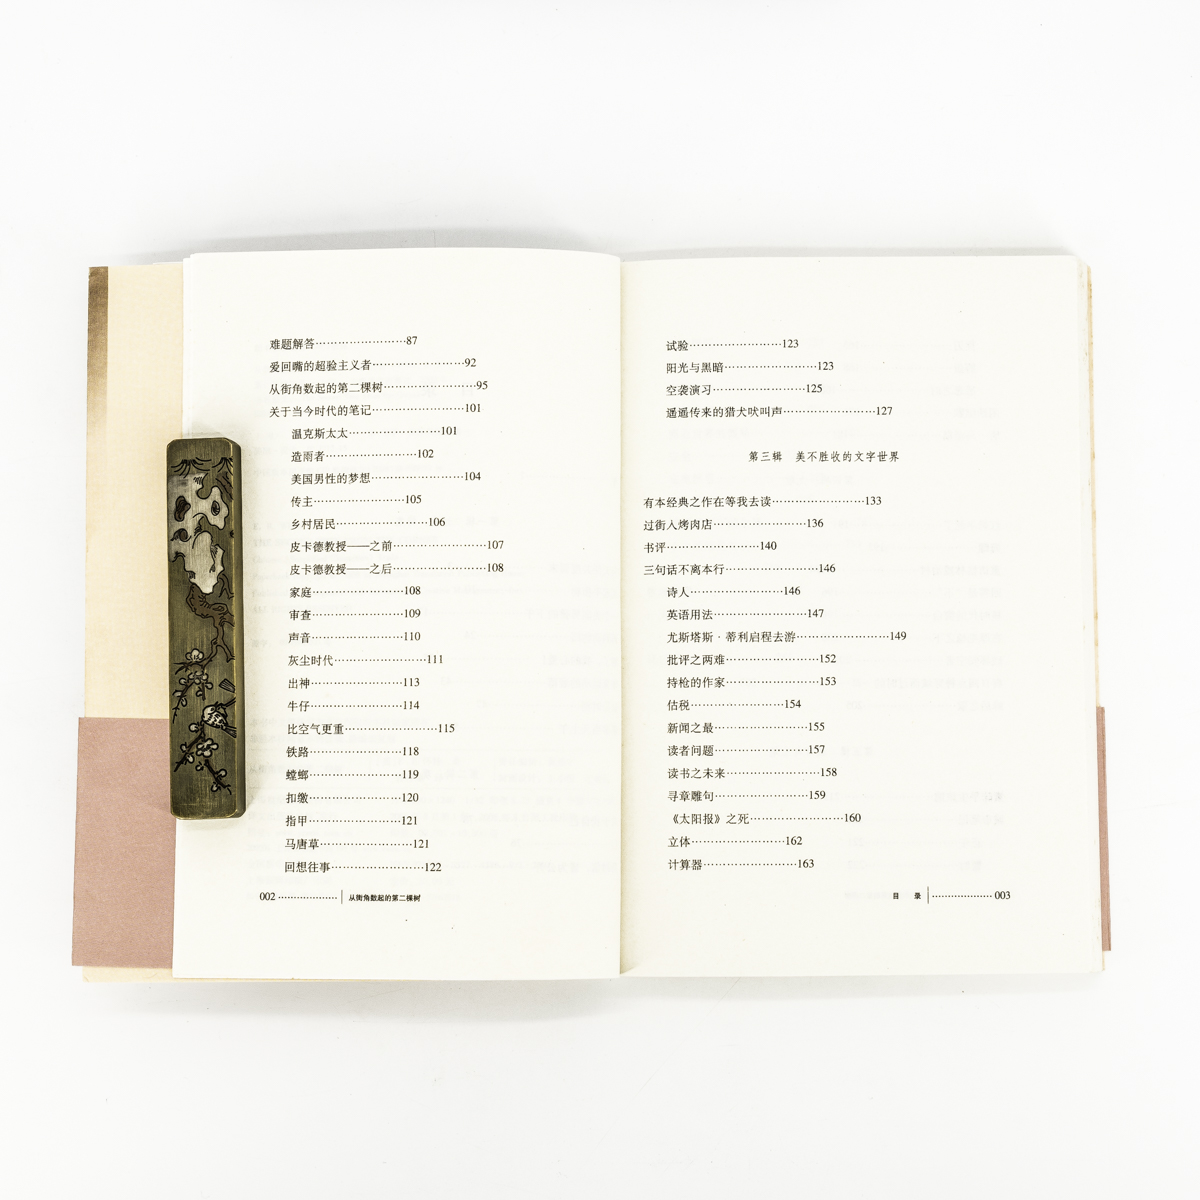 难题解答……………………87
爱回嘴的超验主义者……………………92
从街角数起的第二棵树……………………95
关于当今时代的笔记……………………101
温克斯太太……………………101
造雨者……………………102
美国男性的梦想……………………104
传主……………………105
乡村居民……………………106
皮卡德教授——之前……………………107
皮卡德教授——之后……………………108
家庭……………………108
审查……………………109
声音……………………110
灰尘时代……………………111
出神……………………113
牛仔……………………114
比空气更重……………………115
铁路……………………118
螳螂……………………119
扣缴……………………120
指甲……………………121
马唐草……………………121
回想往事……………………122
002 ………………… 从街角数起的第二棵树
试验……………………123
阳光与黑暗……………………123
空袭演习……………………125
遥遥传来的猎犬吠叫声……………………127
第三辑 美不胜收的文字世界
有本经典之作在等我去读……………………133
过街入烤肉店……………………136
书评……………………140
三句话不离本行……………………146
诗人……………………146
英语用法……………………147
尤斯塔斯·蒂利启程去游……………………149
批评之两难……………………152
持枪的作家……………………153
估税……………………154
新闻之最……………………155
读者问题……………………157
读书之未来……………………158
寻章雕句……………………159
《太阳报》之死……………………160
立体……………………162
计算器……………………163
目 录 ………………… 003